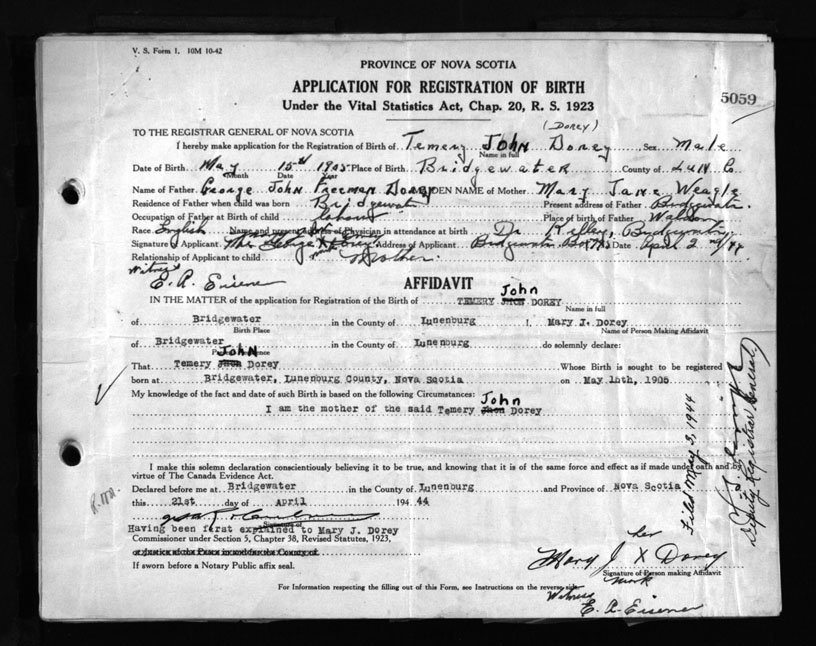 V. S. Form 1. 10M 10-42
PROVINCE OF NOVA SCOTIA
APPLICATION FOR REGISTRATION OF BIRTH
5059
Under the Vital Statistics Act, Chap. 20, R. S. 1923
(Dorey)
TO THE REGISTRAR GENERAL OF NOVA SCOTIA
I hereby make application for the Registration of Birth of Temery John Dorey Sex Male
Name in full
Date of Birth May 15th 1905 Place of Birth Bridgewater County of Lun Co.
Month Date Year
Name of Father George John Freeman Dorey MAIDEN NAME of Mother Mary Jane Weagle
Residence of Father when child was born Bridgewater Present address of Father Bridgewater
Occupation of Father at Birth of child labour Place of birth of Father
Race English Name and present address of Physician in attendance at birth Dr.
Signature of Applicant Mrs George X Dorey Address of Applicant Bridgewater Date April 2 44
mark
Relationship of Applicant to child Mother.
Witness
E. A. Eisener
AFFIDAVIT
John
IN THE MATTER of the application for Registration of the Birth of TEMERY DOREY
Name in full
of Bridgewater in the County of Lunenburg I, Mary J. Dorey
Birth Place Name of Person Making Affidavit
of Bridgewater in the County of Lunenburg do solemnly declare:
John
That Temery Jhon Dorey Whose Birth is sought to be registered
born at Bridgewater, Lunenburg County, Nova Scotia on May 15th, 1905
My knowledge of the fact and date of such Birth is based on the following Circumstances:
John
I am the mother of the said Temery Jhon Dorey
I make this solemn declaration conscientiously believing it to be true, and knowing that it is of the same force and effect as if made under oath and by
virtue of The Canada Evidence Act.
Declared before me at Bridgewater in the County of Lunenburg and Province of Nova Scotia
this 21st day of April 1944 44
Having been first explained to Mary J. Dorey
Commissioner under Section 5, Chapter 38, Revised Statutes, 1923,
or Justice of the Peace in and for the County of
If sworn before a Notary Public affix seal.
her
Mary J X Dorey
Signature of Person making Affidavit
mark
For Information respecting the filling out of this Form, see Instructions on the reverse side.
Witness
E. A. Eisener
Filed May 3, 1944
Deputy Registrar General